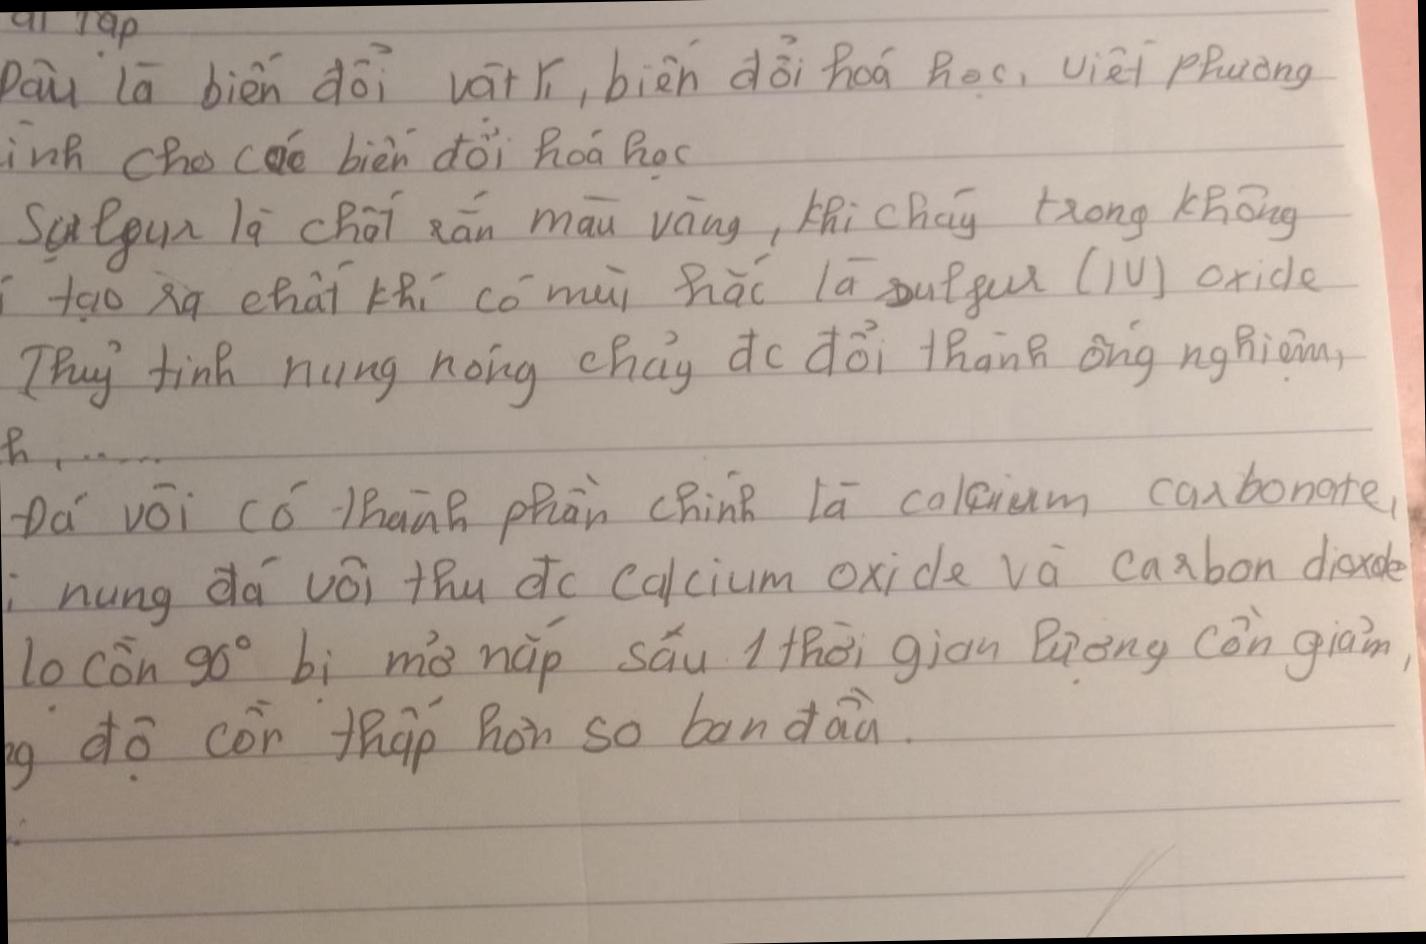 ài Tập
Đâu là biến đổi vật lí, biến đổi hoá học, viết phương
ình cho các biến đổi hoá học
Sulfur là chất rắn màu vàng, khi cháy trong không
í tạo ra chất khí có mùi hắc là sulfur (IV) oxide
Thuỷ tinh nung nóng chảy đc đổi thành ống nghiệm,
h, ......
Đá vôi có thành phần chính là calcium carbonate,
i nung đá vôi thu đc calcium oxide và carbon dioxde
lọ cồn 90° bị mở nắp sau 1 thời gian lượng cồn giảm,
ng độ cồn thấp hơn so ban đầu.